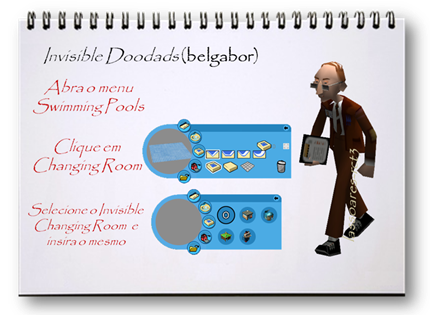 Invisible Doodads (belgabor)
Abra o menu
Swimming Pools
Clique em
Changing Room
Selecione o Invisible
Changing Room e
insira o mesmo